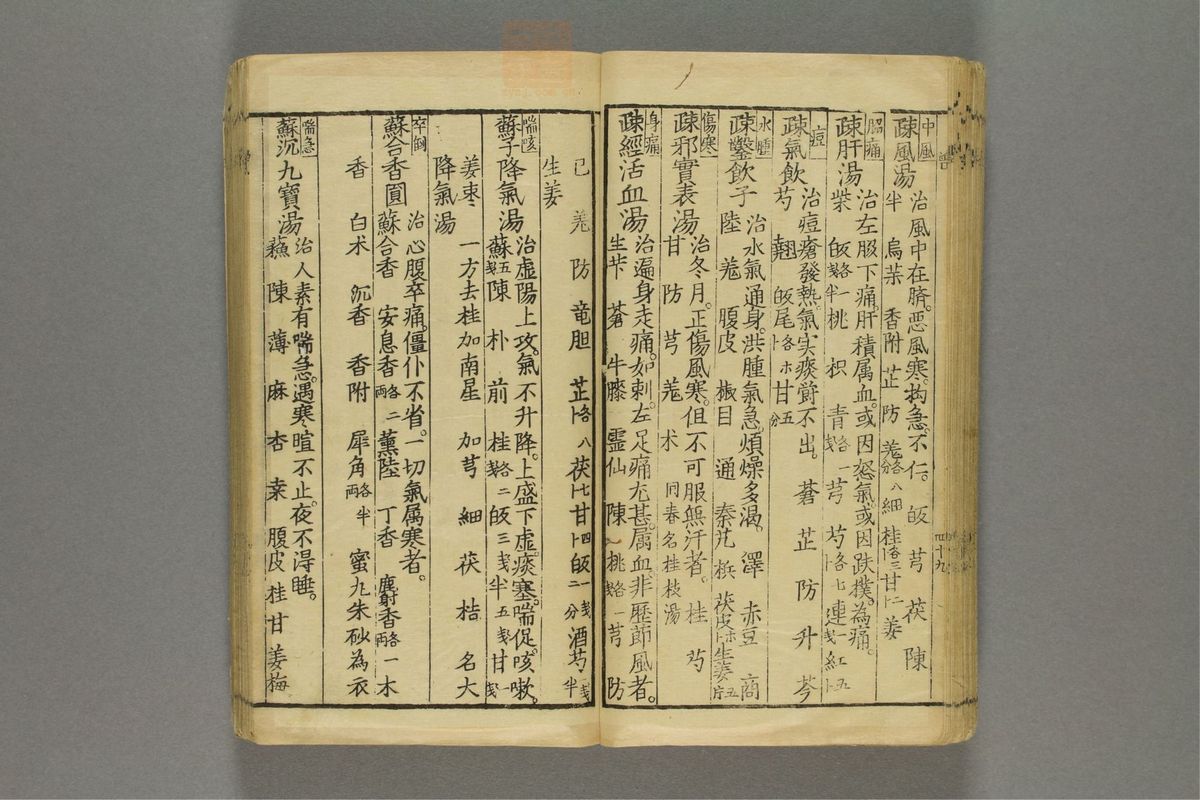 中風
疎風湯
治風中在臍。惡風寒。拘急。不仁。 皈 芎 茯 陳
半 烏 葉 香附 芷 防 羗各八分 細 桂各三卜 甘二卜 姜
脇痛
疎肝湯
治左脇下痛。肝積属血。或因怒氣。或因跌撲。為痛。
柴 皈各一戔半 桃 枳 青各一戔 芎 芍各七卜 連一戔 紅五卜
痘
疎氣飲
治痘瘡發熱。氣実痰欝不出。 蒼 芷 防 升 芩
芍 翹 皈尾 甘五分
水腫
疎鑿飲子
治水氣通身。洪腫氣急。煩燥多渴。 澤 赤豆 商
陸 羗 腹皮 椒目 通 秦艽 梹 茯皮 生姜五片
傷寒
疎邪實表湯
治冬月。正傷風寒。但不可服無汗者。 桂 芍
甘 防 芎 羗 术 同春名桂枝湯
身痛
疎經活血湯
治遍身走痛。如刺。左足痛尤甚。属血。非歷節風者。
生芐 蒼 牛膝 霊仙 陳 桃各一戔 芎 防
已 羗 防 竜胆 芷各八卜 茯七卜 甘四卜 皈一戔二分 酒芍一戔半
生姜
喘咳
蘇子降氣湯
治虚陽上攻。氣不升降。上盛下虚。痰塞。喘促。咳嗽。
蘇五戔 陳 朴 前 桂各二戔 皈三戔 半五戔 甘一戔
姜枣 一方去桂加南星 加芎 細 茯 桔 名大
降氣湯
卒倒
蘇合香圓
治心腹卒痛。僵仆不省。一切氣属寒者。
蘇合香 安息香各二両 薫陸 丁香 麝香各一両 木
香 白术 沉香 香附 犀角各半両 蜜丸朱砂為衣
喘急
蘇沉九寳湯
治人素有喘急。遇寒暄不止。夜不淂睡。
蘇 陳 薄 麻 杏 桒 腹皮 桂 甘 姜 梅